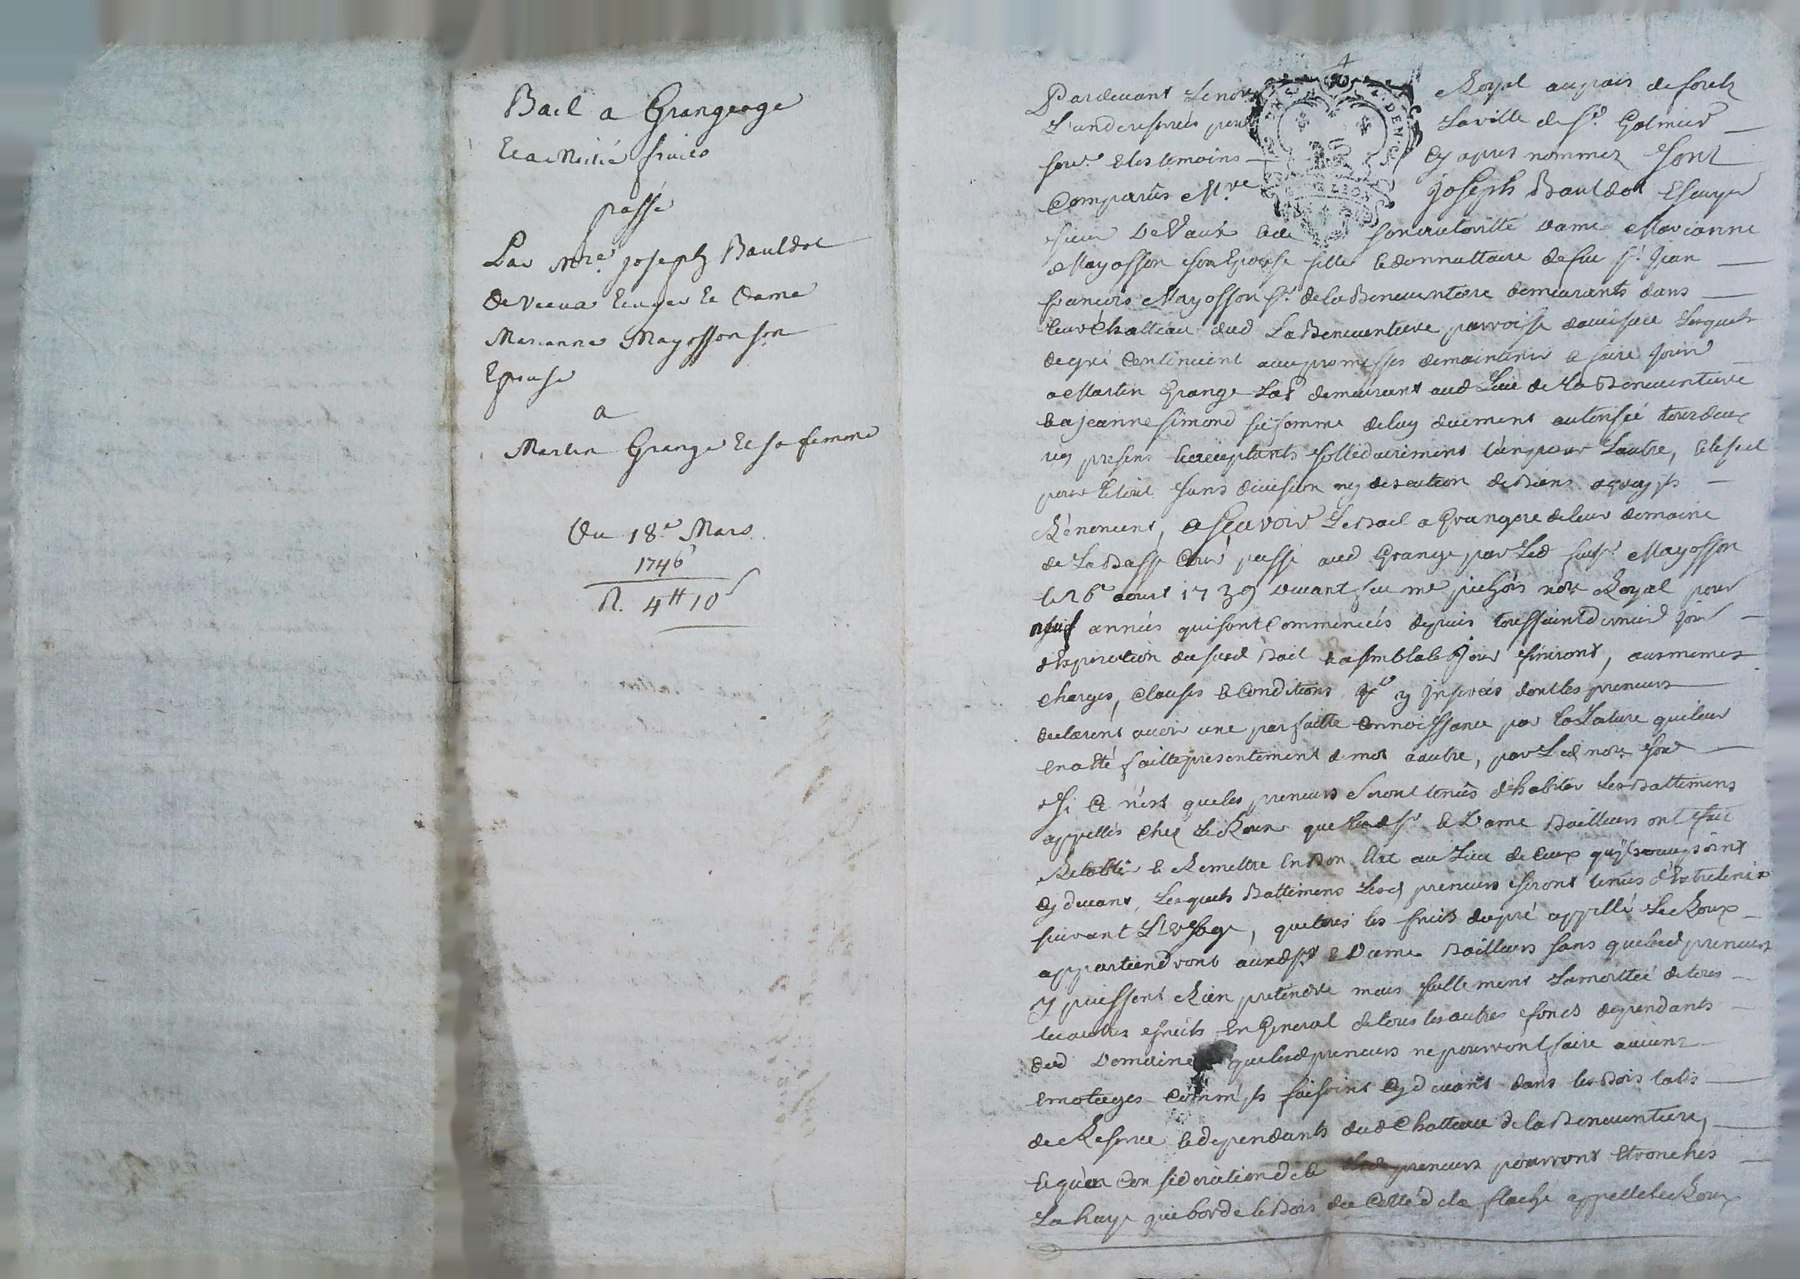 Bail a Grangeage
Et a Moitié fruits
passé
Par Mre. Joseph Bauldot
De Veaux Ecuyer Et Dame
Marianne Mayosson son
Epouse
a
Martin Grange Et sa femme
Du 18e Mars
1746
R. 4tt 10s
Pardevant Le no Royal au païs de forets
La ville de St. Galmier
sousé. & les temoins cy apres nommez sont
Comparûs Mre Joseph Bauldot Escuyer
sieur De Vaux & de son authorité Dame Marianne
Mayosson son Epouse fille & donnattaire de feu Sr. Jean
francois Mayosson Sr. de la Beneventure demeurants dans
leur Chatteau dud La Beneventure parroisse Lesquels
de gré Continuent avec promesses de maintenir & faire Jouir
a Martin Grange Lab demeurant aud Lieu de La Beneventure
& a Jeanne Simond sa femme de luy deüement autorisée tous deux
icy presens & acceptants sollidairement l'un pour L'autre, & le seul
pour Le tout sans division ny de biens a quoy ils
Rénoncent, a Scavoir Le Bail a Grangage de leur domaine
de La Basse Cour passé aud Grange par Led feu Sr. Mayosson
le 26e aoust 1739 devant feu me notre Royal pour
neuf années qui sont Commencéés depuis toussaint dernier Jour
d'Expiration du susd Bail & a semblable Jour finiront, aux mesmes
Charges, Clauses & Conditions y Inserées dont les preneurs
declarent avoir une parfaitte Connoissance par La Lecture qui leur
en a Eté faitte presentement de mot a autre, par Led notre sousé
Si Ce n'est que les preneurs Seront tenûs d'habiter Les Battimens
appellés Chez Le Roux que Lesd Sr. & Dame Bailleurs ont fait
Retablir & Remettre En Bon Etat au Lieu de Ceux qu'ils occupoint
Cy devant, Lesquels Battimens Lesd preneurs seront tenus d'Entretenir
suivant L'Usage, que tous les fruits du pré appellé Le Roux
appartiendront auxd Sr & Dame Bailleurs sans que lesd preneurs
y puissent Rien pretendre mais sullement La moittié de tous
les autres fruits En General de tous les autres fonds dependants
dud Domaine que lesd preneurs ne pourront faire aucuns
Comm'ils faisoint Cy devant dans les Bois talis
de Reserve & dependants dud Chatteau de la Beneventure,
& qu'En Consideration de Ce Lesd preneurs pourront Etroncher
La haye qui borde le Bois du Cotté de la flache appellé Le Roux